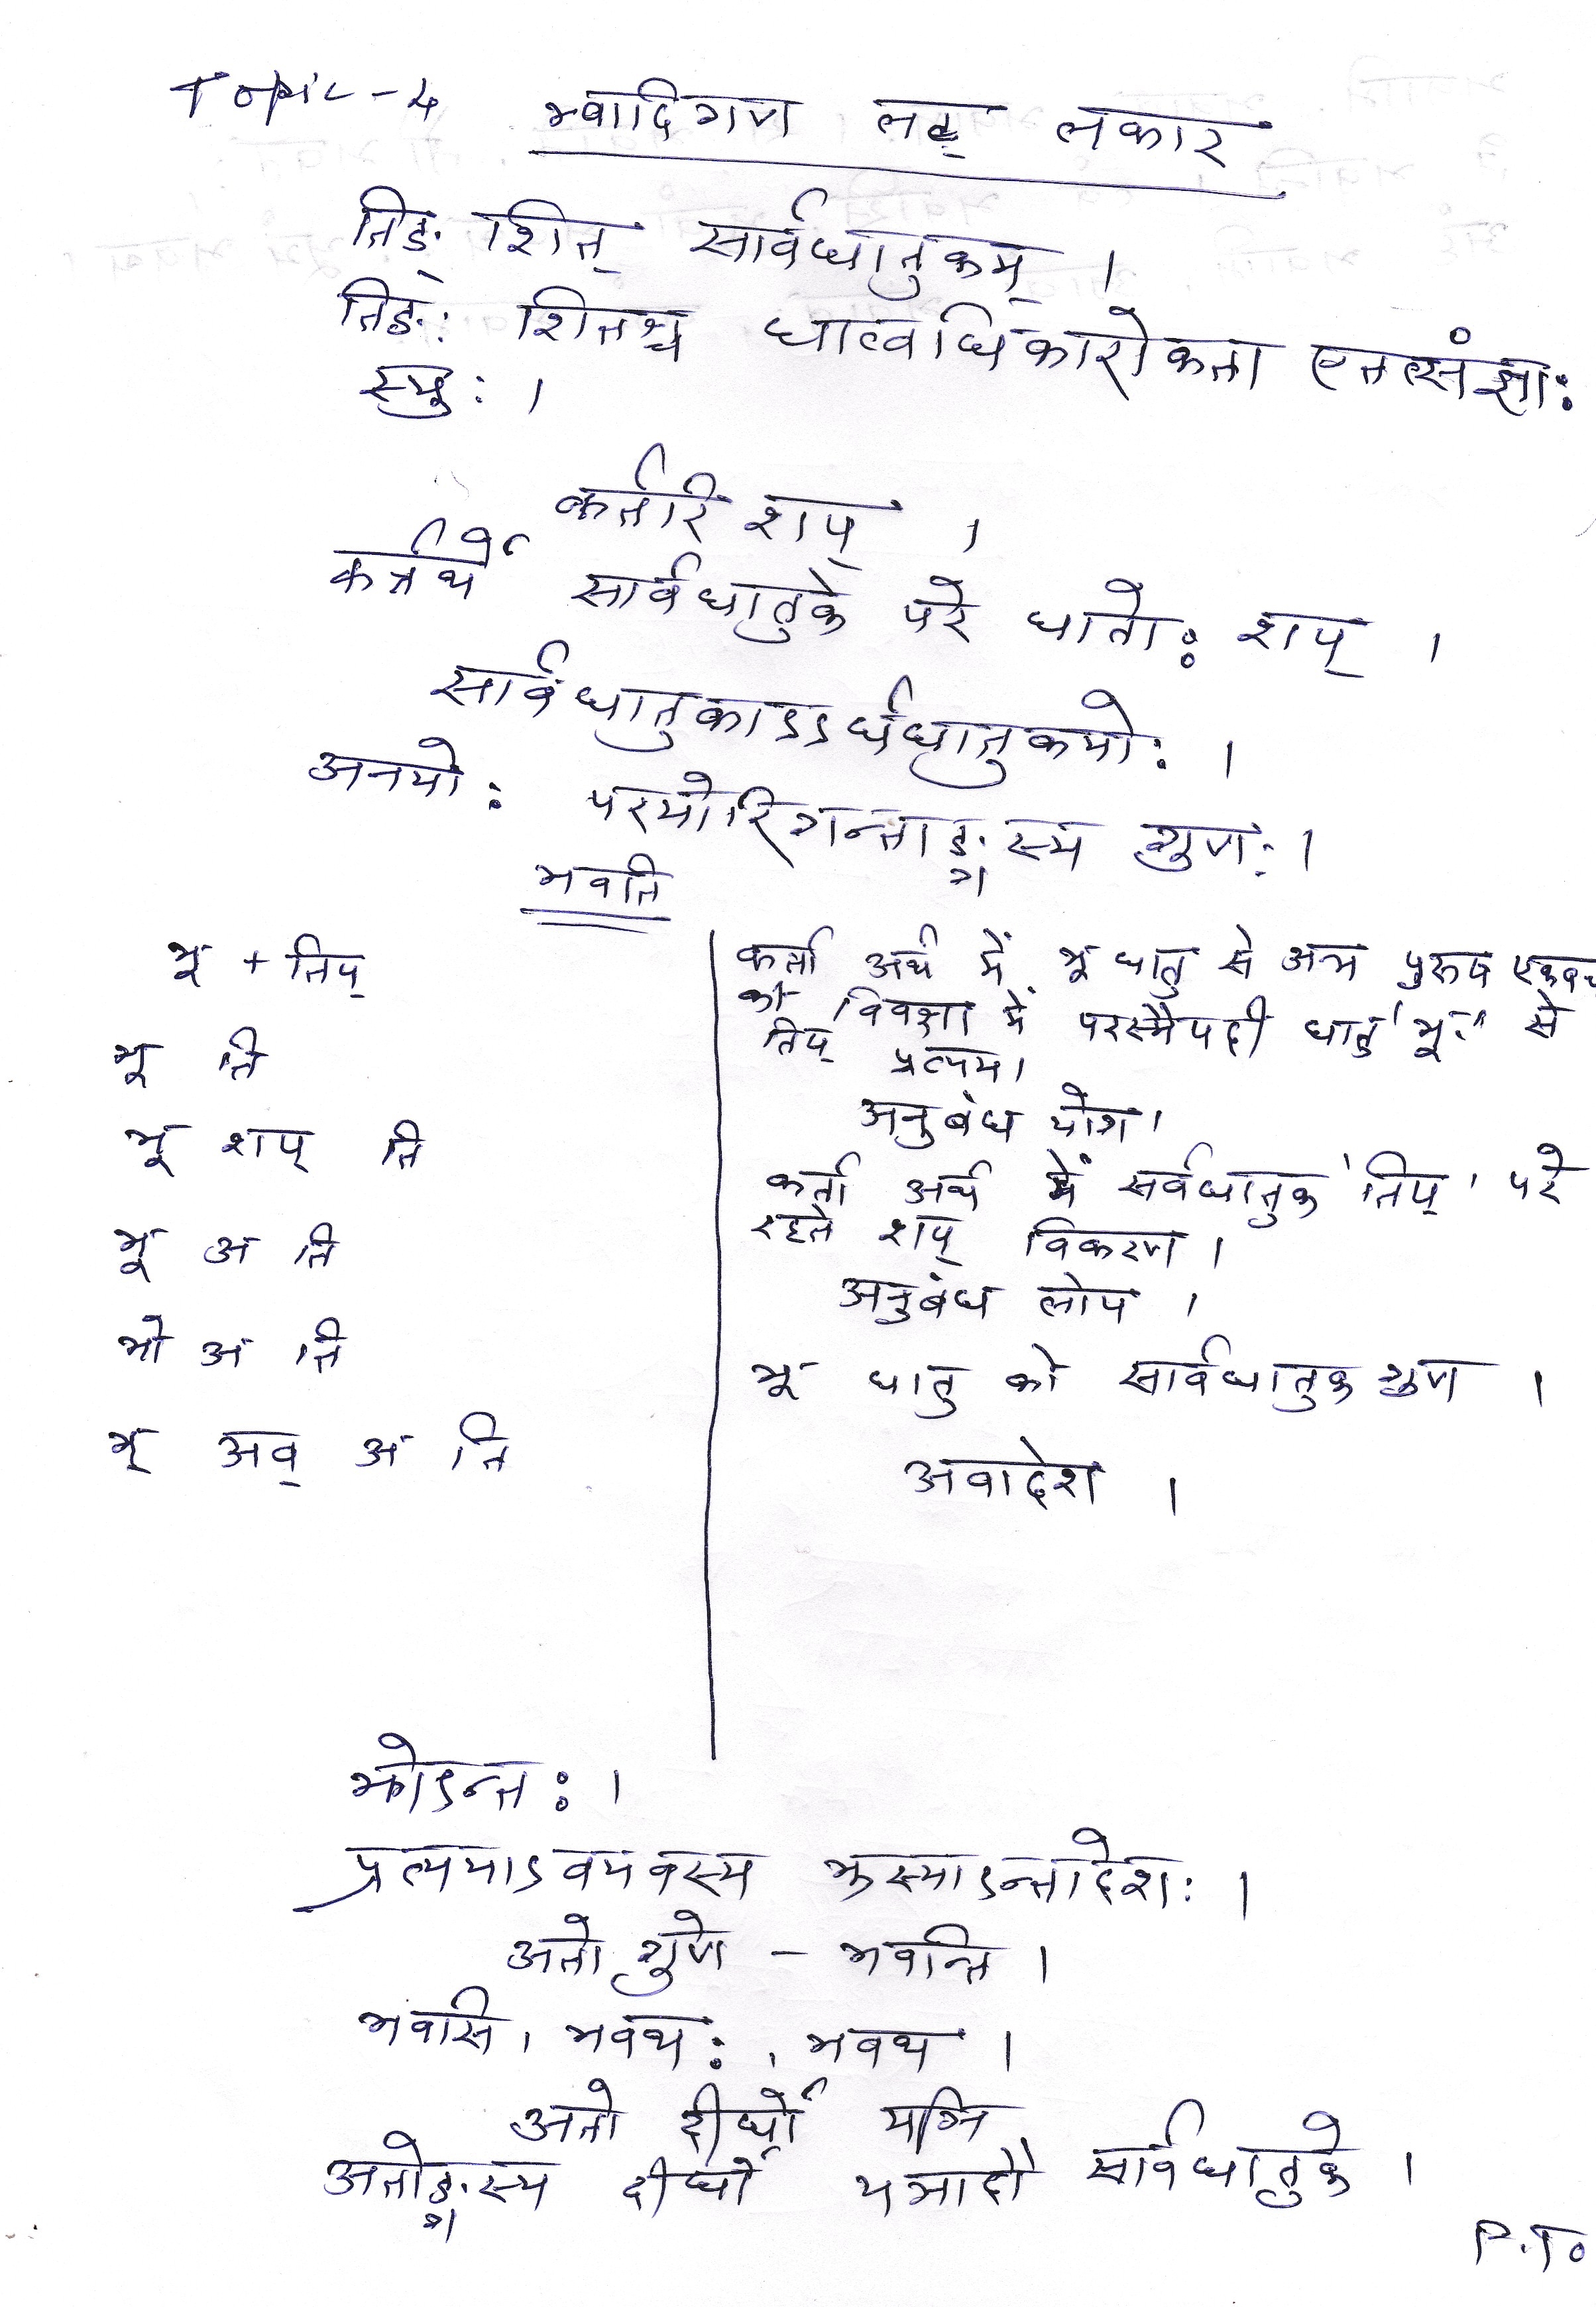 Topic-4 भ्वादिगण लट् लकार
तिङ् शित् सार्वधातुकम् ।
तिङः शितश्च धात्वधिकारोक्ता एतत्संज्ञाः
स्युः ।
कर्तरि शप् ।
कर्त्रर्थे सार्वधातुके परे धातोः शप् ।
सार्वधातुकाऽऽर्धधातुकयोः ।
अनयोः परयोरिगन्ताङ्गस्य गुणः ।
भवति
भू + तिप्
भू ति
भू शप् ति
भू अ ति
भो अ ति
भ् अव् अ ति
कर्ता अर्थ में भू धातु से अन्य पुरुष एकवच
की विवक्षा में परस्मैपदी धातु 'भू' से
तिप् प्रत्यय।
अनुबंध योग।
कर्ता अर्थ में सर्वधातुक 'तिप्' परे
रहते शप् विकरण ।
अनुबंध लोप ।
भू धातु को सार्वधातुक गुण ।
अवादेश ।
झोऽन्तः ।
प्रत्ययाऽवयवस्य झस्याऽन्तादेशः ।
अतो गुणे - भवन्ति ।
भवसि, भवथः, भवथ ।
अतो दीर्घो यञि
अतोङ्गस्य दीर्घो यञादौ सार्वधातुके ।
P.T.